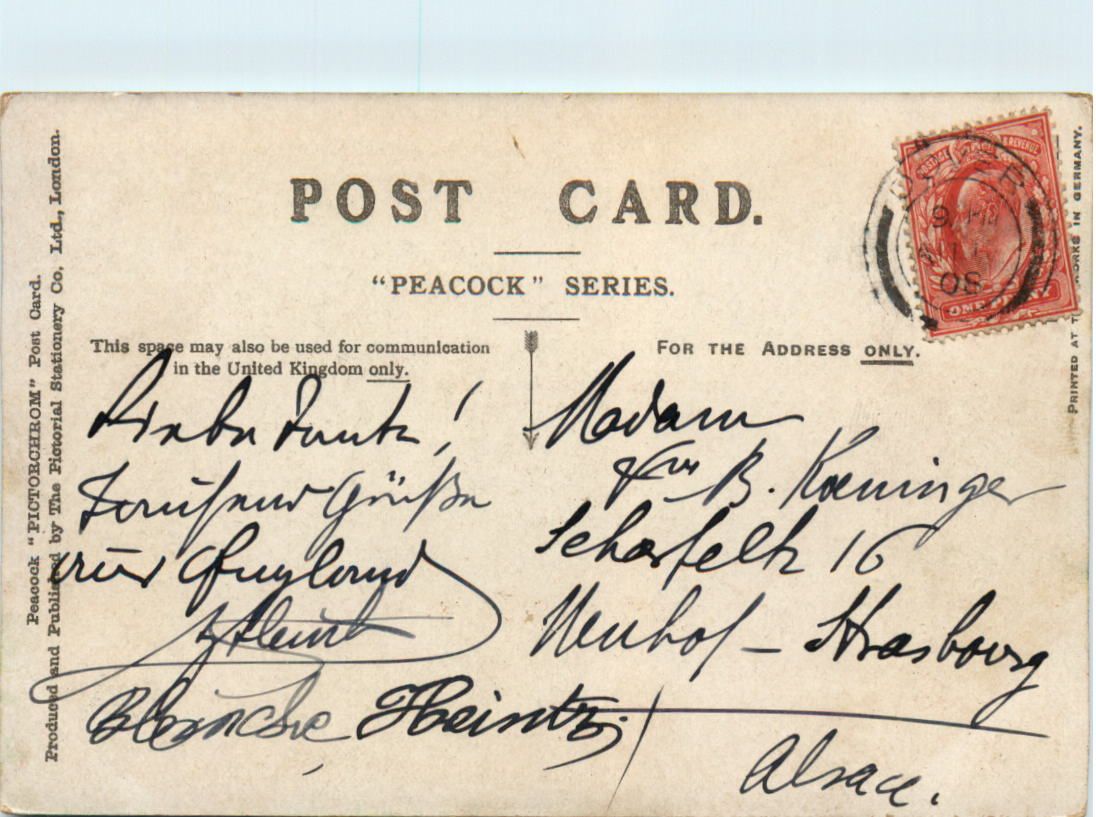 POST CARD.
"PEACOCK" SERIES.
This space may also be used for communication
in the United Kingdom only.
FOR THE ADDRESS ONLY.
Peacock "PICTORCHROM" Post Card.
Produced and Published by The Pictorial Stationery Co, Ltd., London.
PRINTED AT THE WORKS IN GERMANY.
POSTAGE REVENUE
ONE PENNY
08
Liebe Tante!
Tausend Grüße
aus England
Blanche Heintz
Madam
B. Koeninger
16
Neuhof - Strasbourg
Alsace.